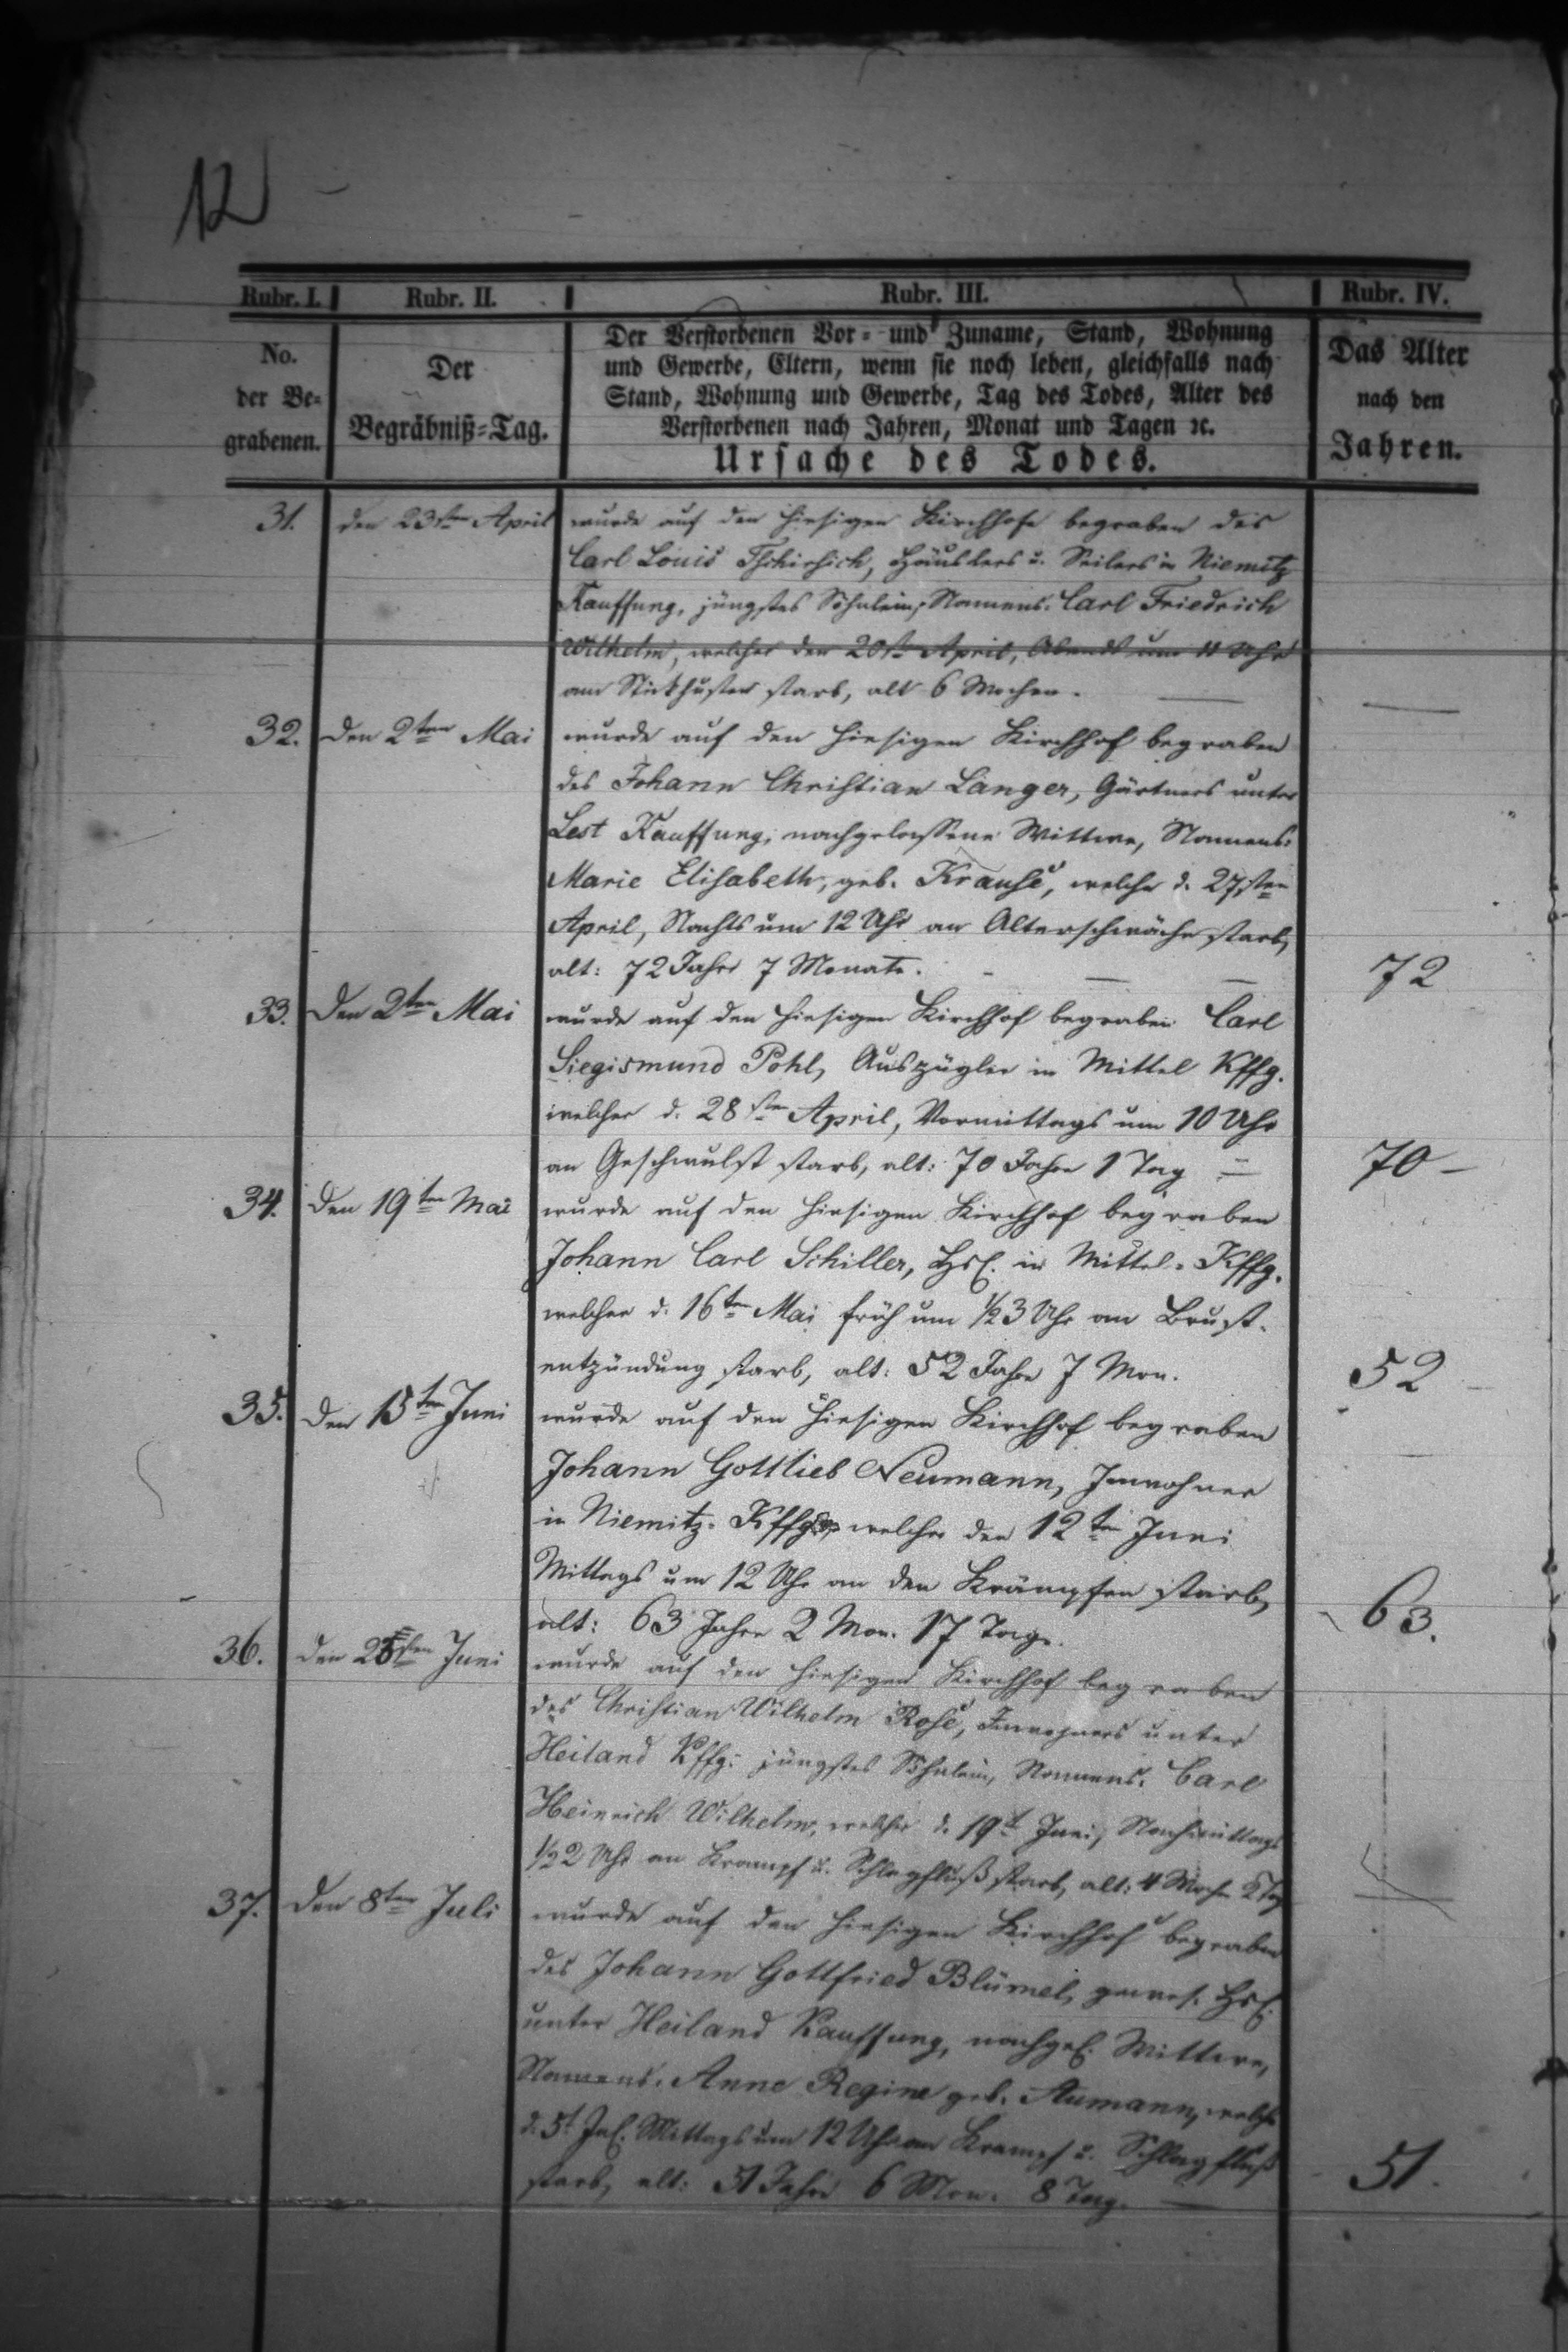 12
Rubr. I. Rubr. II. Rubr. III. Rubr. IV.
No. der Be= grabenen.
Der Begräbniß=Tag.
Der Verstorbenen Vor= und Zuname, Stand, Wohnung
und Gewerbe, Eltern, wenn sie noch leben, gleichfalls nach
Stand, Wohnung und Gewerbe, Tag des Todes, Alter des
Verstorbenen nach Jahren, Monat und Tagen ꝛc.
Ursache des Todes.
Das Alter nach den Jahren.
31. den 23sten April wurde auf den hiesigen Kirchhofe begraben des
Carl Louis Tschirsich, Häuslers u. Seilers in Niemitz
Kauffung, jüngstes Söhnlein, Namens: Carl Friedrich
Wilhelm, welcher den 20st April, Abends um 11 Uhr
am Stickhusten starb, alt 6 Wochen.
32. Den 2ten Mai wurde auf den hiesigen Kirchhof begraben
des Johann Christian Langer, Gärtners unter
Lest Kauffung, nachgelassene Wittwe, Namens:
Marie Elisabeth, geb. Krause, welche d. 27sten
April, Nachts um 12 Uhr an Altersschwäche starb,
alt: 72 Jahr 7 Monate. 72
33. Den 2ten Mai wurde auf den hiesigen Kirchhof begraben Carl
Siegismund Pohl, Auszügler in Mittel Kffg.
welcher d. 28sten April, Vormittags um 10 Uhr
an Geschwulst starb, alt: 70 Jahre 1 Tag 70 –
34. Den 19ten Mai wurde auf den hiesigen Kirchhof begraben
Johann Carl Schiller, Hsl. in Mittel=Kffg.
welcher d. 16ten Mai früh um ½3 Uhr an Brust=
entzündung starb, alt: 52 Jahre 7 Mon. 52
35. Den 15ten Juni wurde auf den hiesigen Kirchhof begraben
Johann Gottlieb Neumann, Inwohner
in Niemitz=Kffg, welcher den 12ten Juni
Mittags um 12 Uhr an den Krämpfen starb,
alt: 63 Jahre 2 Mon. 17 Tage. 63.
36. Den Juni wurde auf den hiesigen Kirchhof begraben
des Christian Wilhelm Rose, Inwohners unter
Heiland Kffg: jüngstes Söhnlein, Namens: Carl
Heinrich Wilhelm, welcher d. 19t Juni, Nachmittags
½2 Uhr an Krampf u. Schlagfluß starb, alt: 4 Woch. 2 Tag
37. Den 8ten Juli wurde auf den hiesigen Kirchhof begraben
des Johann Gottfried Blümel, gewes. Hsl.
unter Heiland Kauffung, nachgel. Wittwe,
Namens: Anne Regine geb. Aumann, welche
d. 5t Jul. Mittags um 12 Uhr am Krampf u. Schlagfluß
starb, alt: 51 Jahre 6 Mon. 8 Tag. 51.